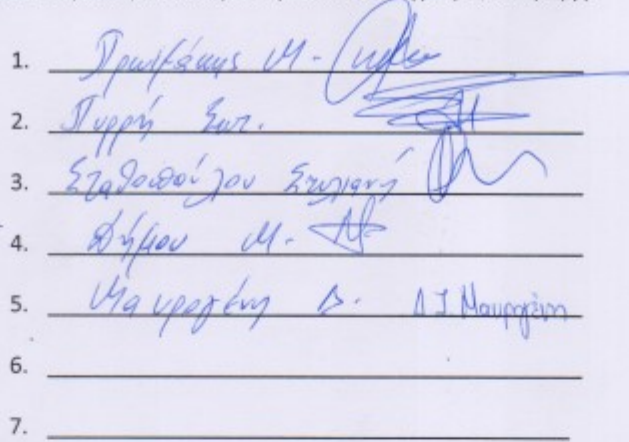 1. Πρωιμάκης Μ.
2. Πυρρή Σωτ.
3. Σταθοπούλου Στυλιανή
4. Δήμου Μ.
5. Μαυρογένη Δ. Δ.Ι. Μαυρογένη
6.
7.